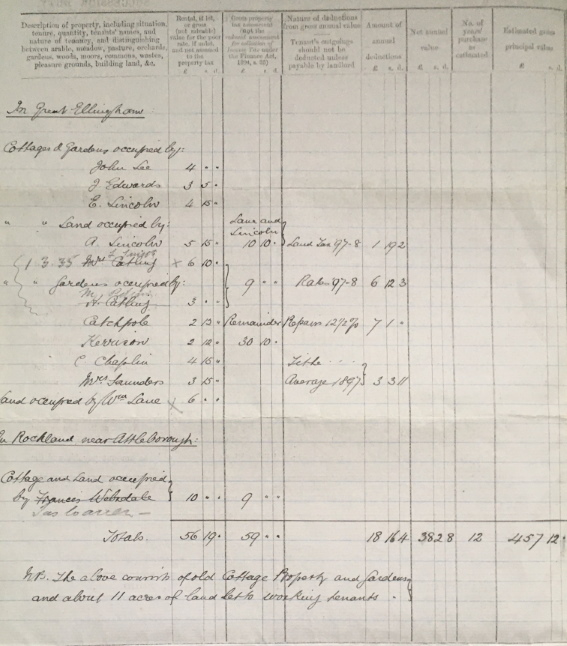 Description of property, including situation, tenure, quantity, tenants' names, and nature of tenancy, and distinguishing between arable, meadow, pasture, orchards, gardens, woods, moors, commons, wastes, pleasure grounds, building land, &c.
Nature of deductions from gross annual value
Tenant's outgoings should not be deducted unless payable by landlord
Amount of annual deductions
Net annual value
No. of years' purchase estimated
Estimated gross principal value
In Great Ellingham:
Cottages & Gardens occupied by:
John Lee 4 . .
J. Edwards 3 5 .
E. Lincoln 4 15 .
" " Land occupied by:
Lane and Lincoln
A. Lincoln 5 15 . 10 10 . Land Tax 97-8 1 19 2
Mrs Catling x 6 10 .
" " Gardens occupied by: 9 . . Rates 97-8 6 12 3
Catling 3 . .
Catchpole 2 12 . Remainder Repairs 12½% 7 1 .
Kerrison 2 12 . 30 10 .
C Chaplin 4 15 . Tithe
Mrs Saunders 3 15 . Average 1897 3 3 11
Land occupied by Wm Lane x 6 . .
In Rockland near Attleborough:
Cottage and Land occupied
by Frances Websdale 10 . . 9 . .
Totals. 56 19 . 59 . . 18 16 4 38 2 8 12 457 12 .
NB. The above consists of old Cottage Property and Gardens
and about 11 acres of land let to working tenants.